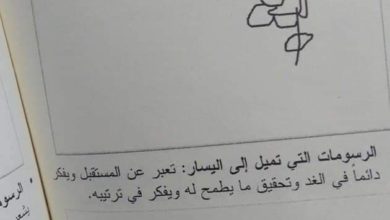 الرسومات التي تميل إلى اليسار: تعبر عن المستقبل ويفكر
دائماً في الغد وتحقيق ما يطمح له ويفكر في ترتيبه.